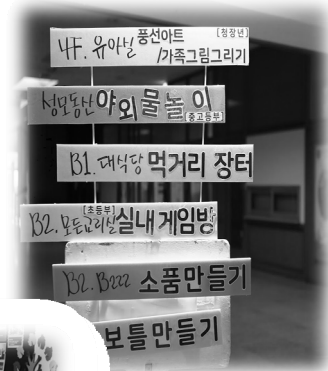 4F. 유아실 풍선아트 [청장년]
/가족그림그리기
성모동산 야외물놀이
[중고등부]
B1. 대식당 먹거리 장터
B2. 모든교리실 [초등부] 실내게임방
B2. B222 소품만들기
보틀만들기